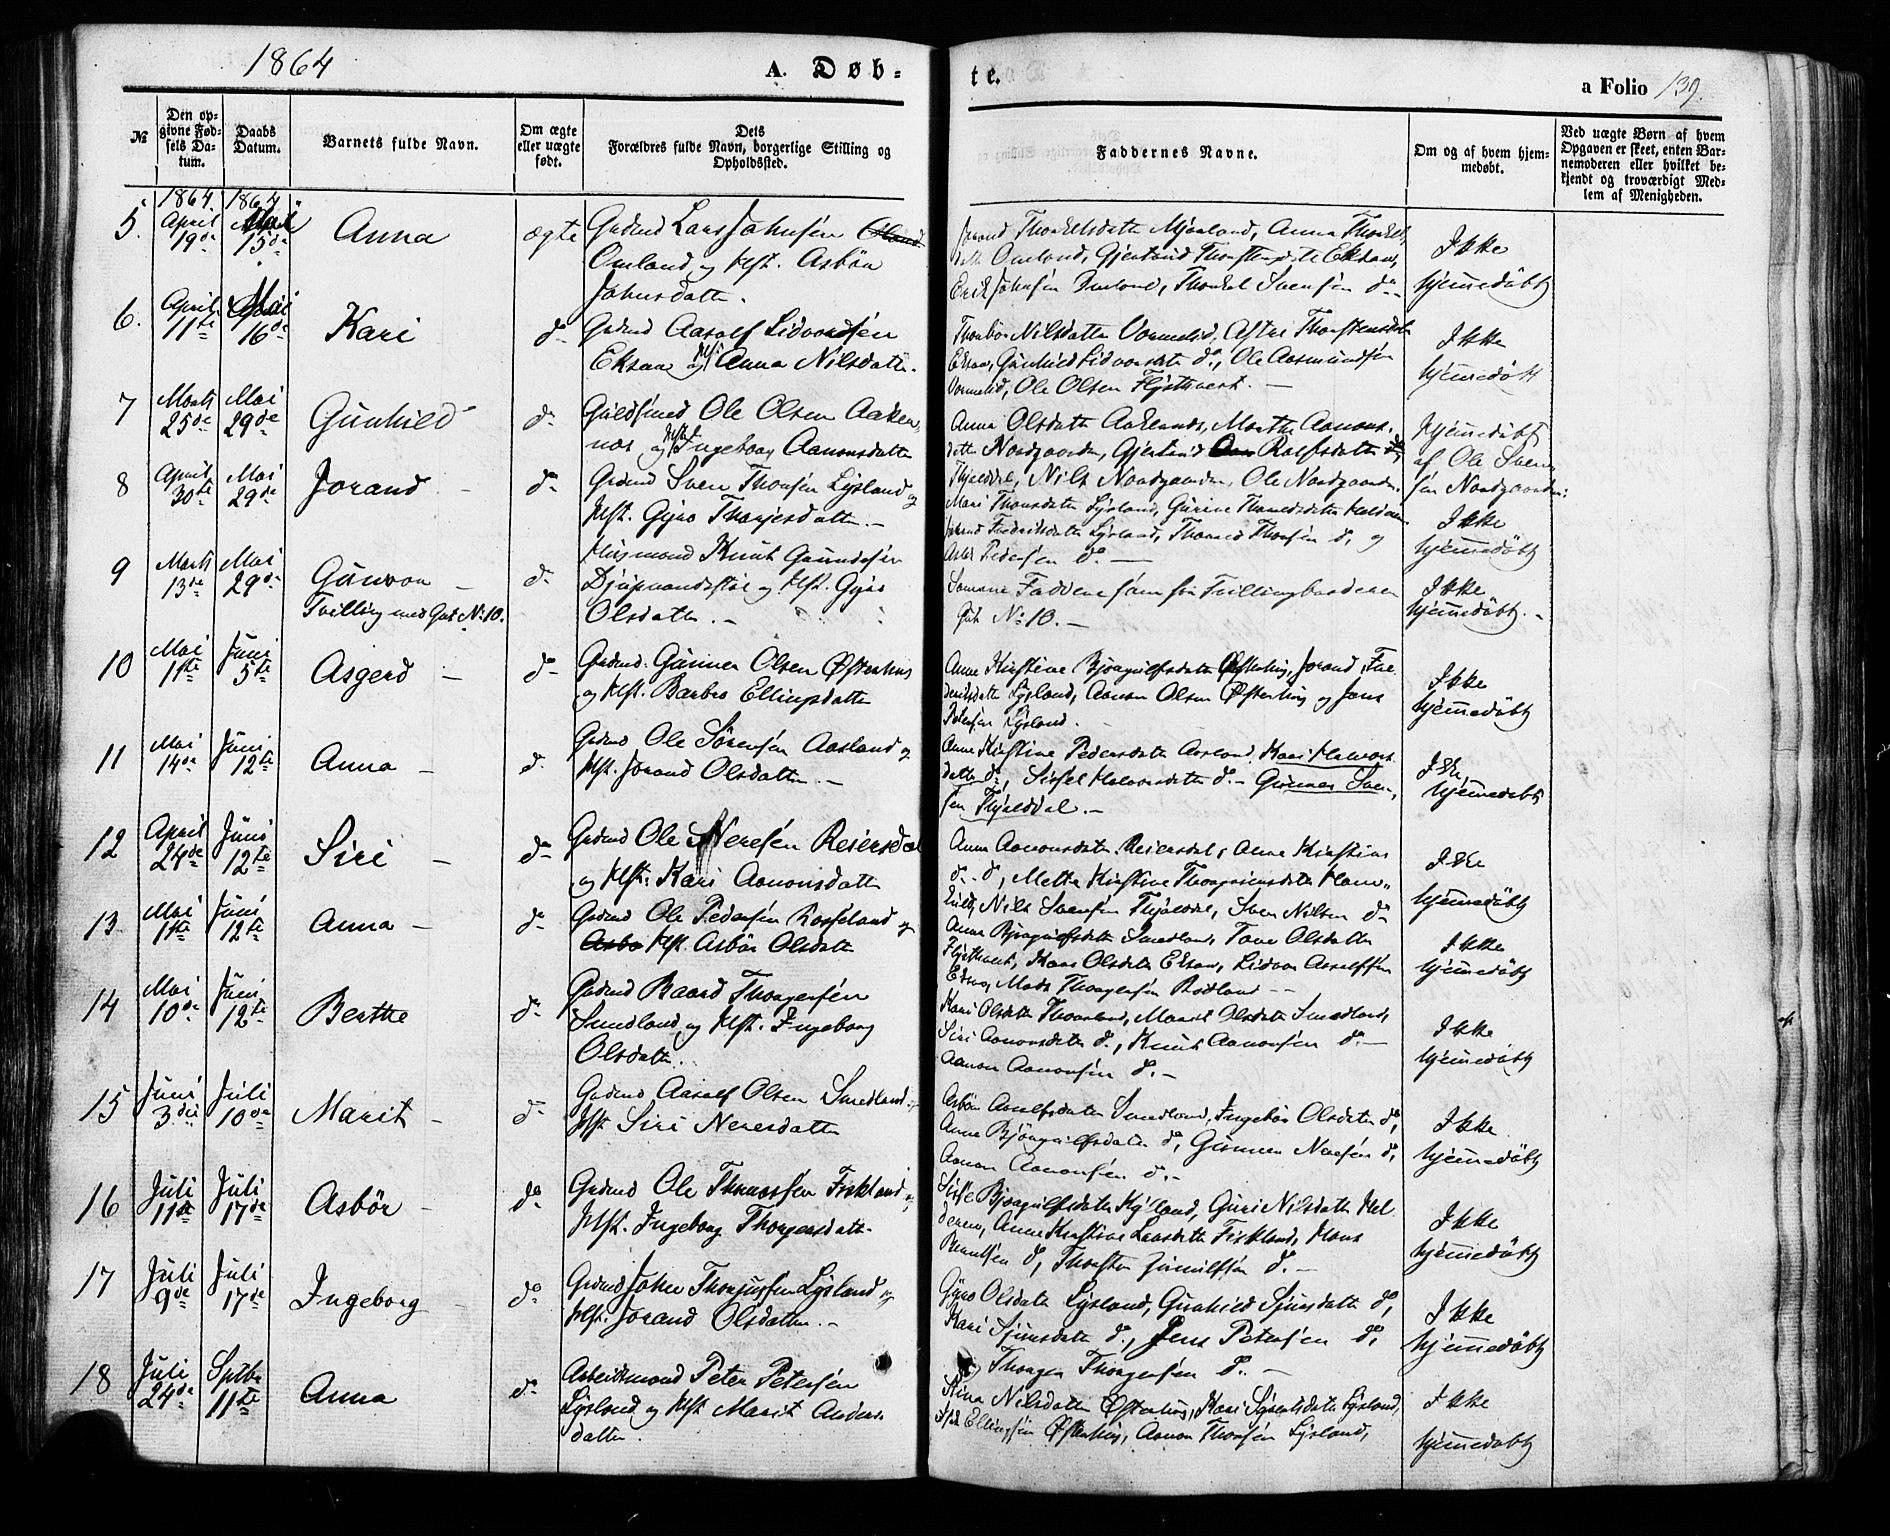 1864
A. Døb-
te.
a Folio 139.
№
Den opgivne Fødsels Datum.
Daabs Datum.
Barnets fulde Navn.
Om ægte eller uægte født.
Dets
Forældres fulde Navn, borgerlige Stilling og
Opholdssted.
Faddernes Navne.
Om og af hvem hjemmedøbt.
Ved uægte Børn af hvem
Opgaven er skeet, enten Barnemoderen eller hvilket bekjendt og troværdigt Medlem af Menigheden.
1864. 1864
5. April 19de Mai 15de Anna ægte Grdmd Lars Johnsen
Omland og Hst. Asbør
Johnsdatter.
Jorand Thorkelsdatter Mjaaland, Anna Thorkels
datter Omland, Gjertrud Eksaa,
Erik Johnsen Omland, Thorkel Svensen do
Ikke
hjemmedøbt
6. April 11te Mai 16de Kari do Grdmd Aasolf Lidvordsen
Eksaa og Hst. Anna Nilsdatter.
Thorbør Nilsdatter Vormelid,
Eksaa, Gunhild do, Ole Aasmundsen
Vormelid, Ole Olsen
Ikke
hjemmedøbt
7 Marts 25de Mai 29de Gunhild do Guldsmed Ole Olsen Aaken-
næs og Hst. Ingeborg Aanonsdatter
Anna Olsdatter Marthe Aanons-
datter Nordgaarden, Gjertrud Rolfsdatter
Nils Nordgaarden, Ole Nordgaarden.
Hjemmedøbt
af Ole Sven-
sen Nordgaarden:
8 April 30te Mai 29de Jorand do Grdmd Sven Thorsen Lysland og
Hst. Gyro Thorjersdatter.
Mari Thorsdatter Lysland,
Jorand Fredriksdatter Lysland, Thomas Thorsen do, og
Pedersen do
Ikke
hjemmedøbt
9 Marts 13de Mai 29de Gunvor do Husmand Knut Gundersen
Tvilling med Gut No 10.
og Hst. Gyro
Olsdatter.
Samme Faddere som for Tvillingbroderen
Gut No 10.
Ikke
hjemmedøbt.
10 Mai 11te Juni 5te Asgerd do Grdmd. Gunner Olsen Øfterhus
og Hst. Barbro Ellingsdatter
Anne Kirstine Bjørgulfsdatter Jorand Fre
deriksdatter Lysland, Aanon Olsen og Jens
Petersen Lysland.
Ikke
hjemmedøbt
11 Mai 14de Juni 12te Anna do Grdmd Ole Sørensen Aasland og
Hst. Jorand Olsdatter.
Anne Kirstine Pedersdatter Aasland, Kari Halvors-
datter do, Sissel Halvorsdatter do Gunner Sven-
sen
Ikke
hjemmedøbt
12 April 24de Juni 12te Siri do Grdmd Ole Neresen Reiersdal
og Hst. Kari Aanonsdatter
Anna Aanonsdatter Reiersdal, Anne Kirstine
do. do, Mette Kirstine
Nils Svensen Sven Nilsen do
Ikke
hjemmedøbt
13 Mai 11te Juni 12te Anna do Grdmd Ole Pedersen Rosseland og
Hst. Asbør Olsdatter
Anne Bjørgulfsdatter Smedland, Tone Olsdatter
Kari Olsdatter Eksaa, Lidvor Aasolfsen
Eksaa, Mads Thorgersen
Ikke
hjemmedøbt
14 Mai 10de Juni 12te Berthe do Grdmd Baard Thorgersen
Smedland og Hst. Ingeborg
Olsdatter.
Kari Olsdatter Marit Olsdatter Smedland,
Siri Aanonsdatter do, Knut Aanonsen do
Aanon Aanonsen do
Ikke
hjemmedøbt
15 Juni 3die Juli 10de Marit do Grdmd Aasolf Olsen Smedland og
Hst Siri Neresdatter
Asbør Aasolfsdatter Smedland, Ingebør Olsdatter do,
Anne Bjørgulfsdatter do, Gunner Neresen do,
Aanon Aanonsen do
Ikke
hjemmedøbt
16 Juli 11te Juli 17de Asbør do Grdmd Ole Thomassen Fiskland og
Hst. Ingeborg Thorgersdatter
Sissel Bjørgulfsdatter Guri Nilsdatter
Anne Kirstine Larsdatter Fiskland, Hans
do, Thorsten do
Ikke
hjemmedøbt
17 Juli 9de Juli 17de Ingeborg do Grdmd John Lysland og
Hst. Jorand Olsdatter.
Gyro Olsdatter Lysland, Gunhild Sjursdatter do,
Kari Sjursdatter do, Jens Petersen do,
Thorger Thorgersen do
Ikke
hjemmedøbt
18 Juli 24de Sptbr 11te Anna do Arbeidsmand Peter Petersen
Lysland og Hst Marit Anders-
datter.
Stina Nilsdatter Kari Lysland,
Ellingsen Øfterhus, Aanon Thorsen Lysland,
Ikke
hjemmedøbt